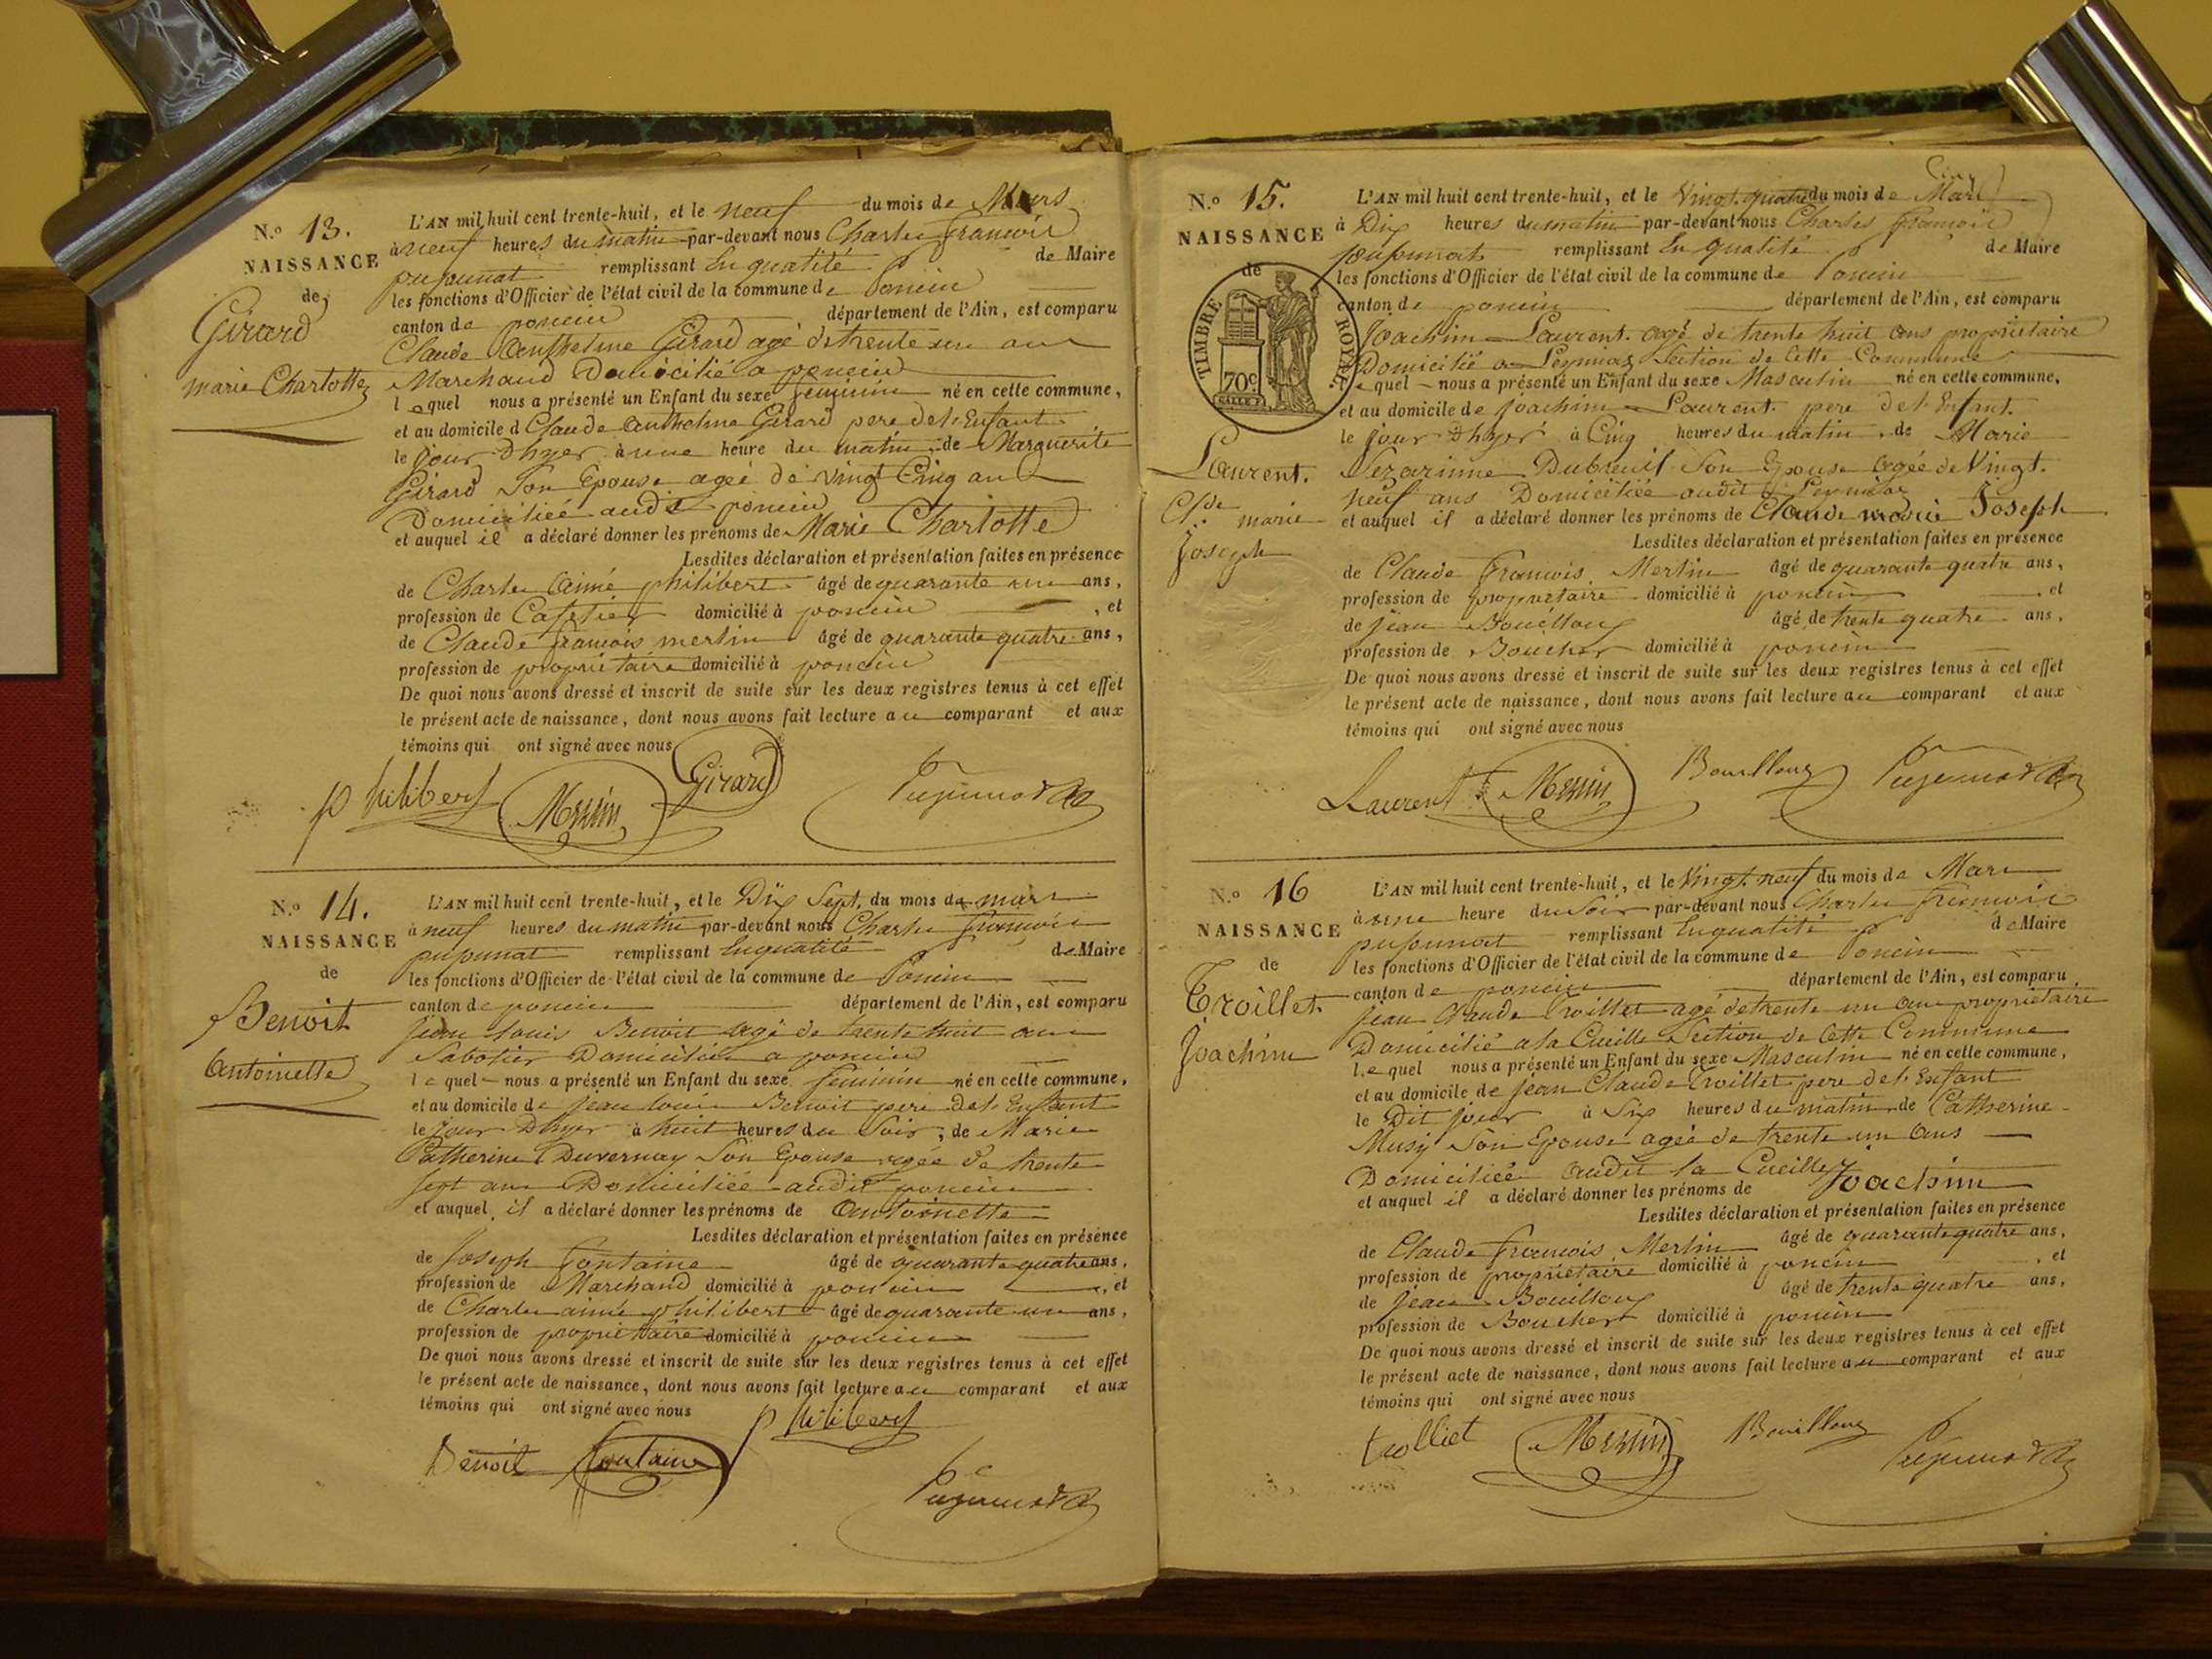 N.º 13.
NAISSANCE
de
Girard
marie Charlotte
L'AN mil huit cent trente-huit, et le neuf du mois de Mars
à neuf heures du matin par-devant nous Charles francois
pujunat remplissant En qualité de Maire
les fonctions d'Officier de l'état civil de la commune de Poncin
canton de poncin département de l'Ain, est comparu
Claude Anthelme Girard agé de trente un ans
Marchand Domicilié a poncin
lequel nous a présenté un Enfant du sexe feminin né en cette commune,
et au domicile d Claude Anthelme Girard pere de l'Enfant
le jour Dhyer à une heure du matin, de Marguerite
Girard Son Epouse agée de vingt Cinq ans
Domiciliée audit poncin
et auquel il a déclaré donner les prénoms de Marie Charlotte
Lesdites déclaration et présentation faites en présence
de Charles Aimé philibert âgé de quarante un ans,
profession de Cafetier domicilié à poncin , et
de Claude francois merlin âgé de quarante quatre ans,
profession de propriétaire domicilié à poncin
De quoi nous avons dressé et inscrit de suite sur les deux registres tenus à cet effet
le présent acte de naissance, dont nous avons fait lecture au comparant et aux
témoins qui ont signé avec nous
philibert Merlin Girard
N.º 14.
NAISSANCE
de
Benoit
Antoinette
L'AN mil huit cent trente-huit, et le Dix Sept, du mois de mars
à neuf heures du matin par-devant nous Charles francois
pujunat remplissant En qualité de Maire
les fonctions d'Officier de l'état civil de la commune de Poncin
canton de poncin département de l'Ain, est comparu
jean louis Benoit agé de trente huit ans
Sabotier Domicilié a poncin
lequel nous a présenté un Enfant du sexe feminin né en cette commune,
et au domicile de jean louis Benoit pere de l'Enfant
le jour Dhyer à huit heures du Soir, de Marie
Catherine Duvernay Son Epouse agée de trente
sept ans Domiciliée audit poncin
et auquel il a déclaré donner les prénoms de Antoinette
Lesdites déclaration et présentation faites en présence
de Joseph fontaine âgé de quarante quatre ans,
profession de Marchand domicilié à poncin , et
de Charles aimé philibert âgé de quarante un ans,
profession de propriétaire domicilié à poncin
De quoi nous avons dressé et inscrit de suite sur les deux registres tenus à cet effet
le présent acte de naissance, dont nous avons fait lecture au comparant et aux
témoins qui ont signé avec nous
philibert
Benoit fontaine
N.º 15.
NAISSANCE
de
TIMBRE ROYAL
70c
Laurent.
Cl.de marie
Joseph
Cinq
L'AN mil huit cent trente-huit, et le Vingt quatre du mois de Mars
à Dix heures du matin par-devant nous Charles francois
pujunat remplissant En qualité de Maire
les fonctions d'Officier de l'état civil de la commune de Poncin
canton de poncin département de l'Ain, est comparu
Joachim Laurent. agé de trente huit ans propriétaire
Domicilié a Leymiaz Section de Cette Commune
lequel nous a présenté un Enfant du sexe Masculin né en cette commune,
et au domicile de joachim Laurent. pere de l'Enfant.
le jour Dhyer à Cinq heures du matin, de Marie
Dubreuil Son Epouse agée de Vingt.
neuf ans Domiciliée audit Leymiaz
et auquel il a déclaré donner les prénoms de Claude marie Joseph
Lesdites déclaration et présentation faites en présence
de Claude francois Merlin âgé de quarante quatre ans,
profession de propriétaire domicilié à poncin , et
de jean Bouilloux âgé de trente quatre ans,
profession de Boucher domicilié à poncin
De quoi nous avons dressé et inscrit de suite sur les deux registres tenus à cet effet
le présent acte de naissance, dont nous avons fait lecture au comparant et aux
témoins qui ont signé avec nous
Laurent Merlin Bouilloux
N.º 16
NAISSANCE
de
Troillet
Joachim
L'AN mil huit cent trente-huit, et le Vingt neuf du mois de Mars
à une heure du Soir par-devant nous Charles francois
pujunat remplissant En qualité de Maire
les fonctions d'Officier de l'état civil de la commune de Poncin
canton de poncin département de l'Ain, est comparu
jean Claude Troillet agé de trente un ans propriétaire
Domicilié a la Cueille Section de Cette Commune
lequel nous a présenté un Enfant du sexe Masculin né en cette commune,
et au domicile de jean Claude Troillet pere de l'Enfant
le Dit jour à Six heures du matin, de Catherine
Musy Son Epouse agée de trente un ans
Domiciliée audit la Cueille
et auquel il a déclaré donner les prénoms de Joachim
Lesdites déclaration et présentation faites en présence
de Claude francois Merlin âgé de quarante quatre ans,
profession de propriétaire domicilié à poncin , et
de jean Bouilloux âgé de trente quatre ans,
profession de Boucher domicilié à poncin
De quoi nous avons dressé et inscrit de suite sur les deux registres tenus à cet effet
le présent acte de naissance, dont nous avons fait lecture au comparant et aux
témoins qui ont signé avec nous
trolliet Merlin Bouilloux